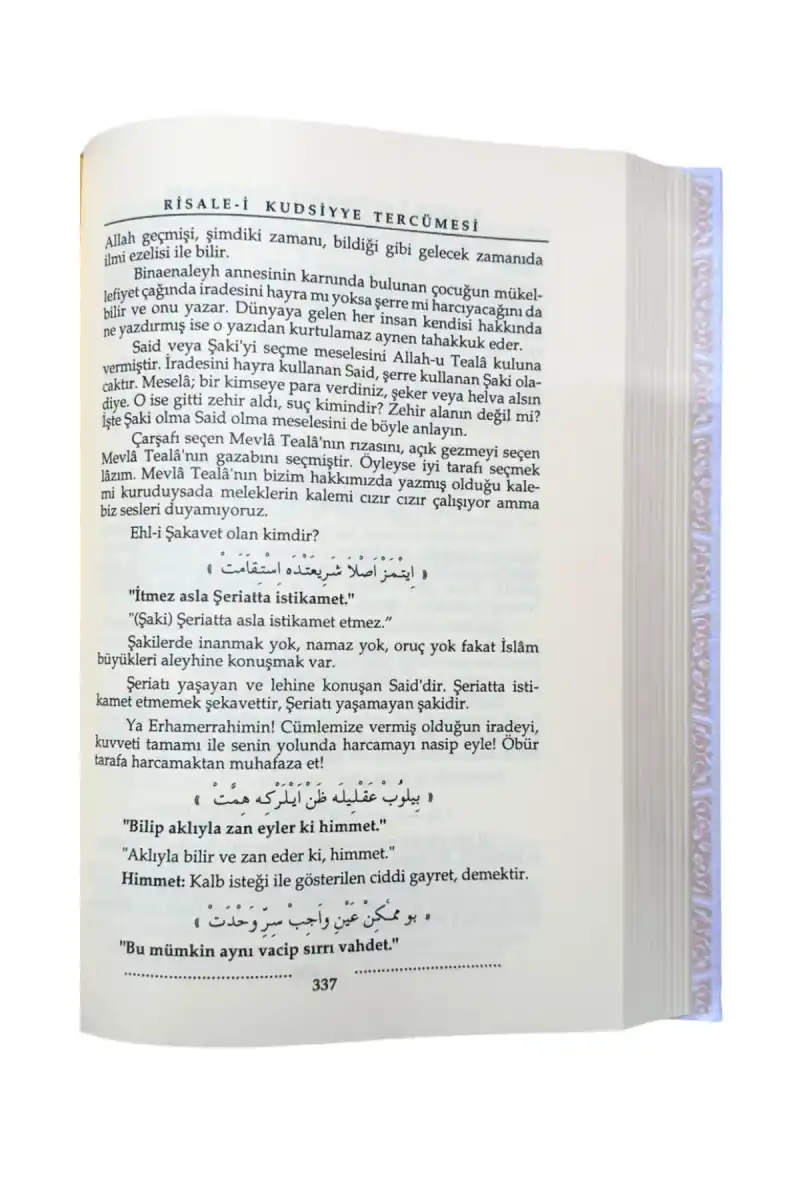 RİSALE-İ KUDSİYYE TERCÜMESİ
Allah geçmişi, şimdiki zamanı, bildiği gibi gelecek zamanıda
ilmi ezelisi ile bilir.
Binaenaleyh annesinin karnında bulunan çocuğun mükel-
lefiyet çağında iradesini hayra mı yoksa şerre mi harcıyacağını da
bilir ve onu yazar. Dünyaya gelen her insan kendisi hakkında
ne yazdırmış ise o yazıdan kurtulamaz aynen tahakkuk eder.
Said veya Şaki'yi seçme meselesini Allah-u Tealâ kuluna
vermiştir. İradesini hayra kullanan Said, şerre kullanan Şaki ola-
caktır. Meselâ; bir kimseye para verdiniz, şeker veya helva alsın
diye. O ise gitti zehir aldı, suç kimindir? Zehir alanın değil mi?
İşte Şaki olma Said olma meselesini de böyle anlayın.
Çarşafı seçen Mevlâ Tealâ'nın rızasını, açık gezmeyi seçen
Mevlâ Tealâ'nın gazabını seçmiştir. Öyleyse iyi tarafı seçmek
lâzım. Mevlâ Tealâ'nın bizim hakkımızda yazmış olduğu kale-
mi kuruduysada meleklerin kalemi cızır cızır çalışıyor amma
biz sesleri duyamıyoruz.
Ehl-i Şakavet olan kimdir?
﴿ اِيتْمَزْ اَصْلاَ شَرِيعَتْدَه اِسْتِقَامَتْ ﴾
"İtmez asla Şeriatta istikamet."
"(Şaki) Şeriatta asla istikamet etmez."
Şakilerde inanmak yok, namaz yok, oruç yok fakat İslâm
büyükleri aleyhine konuşmak var.
Şeriatı yaşayan ve lehine konuşan Said'dir. Şeriatta isti-
kamet etmemek şekavettir, Şeriatı yaşamayan şakidir.
Ya Erhamerrahimin! Cümlemize vermiş olduğun iradeyi,
kuvveti tamamı ile senin yolunda harcamayı nasip eyle! Öbür
tarafa harcamaktan muhafaza et!
﴿ بِيلُوبْ عَقْلِيلَه ظَنْ اَيْلَرْكِه هِمَّتْ ﴾
"Bilip aklıyla zan eyler ki himmet."
"Aklıyla bilir ve zan eder ki, himmet."
Himmet: Kalb isteği ile gösterilen ciddi gayret, demektir.
﴿ بو مُمْكِنْ عَيْنِ وَاجِبْ سِرِّ وَحْدَتْ ﴾
"Bu mümkin aynı vacip sırrı vahdet."
337